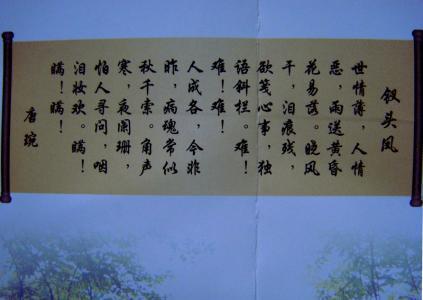 钗头凤
世情薄，人情
恶，雨送黄昏
花易落。晚风
干，泪痕残，
欲笺心事，独
语斜栏。难！
难！难！
人成各，今非
昨，病魂常似
秋千索。角声
寒，夜阑珊，
怕人寻问，咽
泪妆欢。瞒！
瞒！瞒！
唐琬